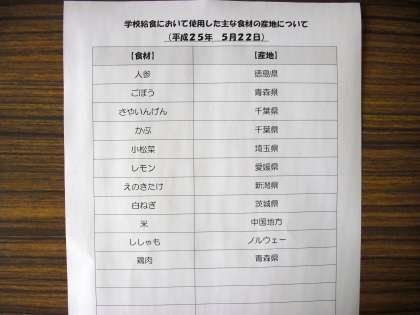 学校給食において使用した主な食材の産地について
（平成２５年　５月２２日）
【食材】　【産地】
人参　徳島県
ごぼう　青森県
さやいんげん　千葉県
かぶ　千葉県
小松菜　埼玉県
レモン　愛媛県
えのきたけ　新潟県
白ねぎ　茨城県
米　中国地方
ししゃも　ノルウェー
鶏肉　青森県